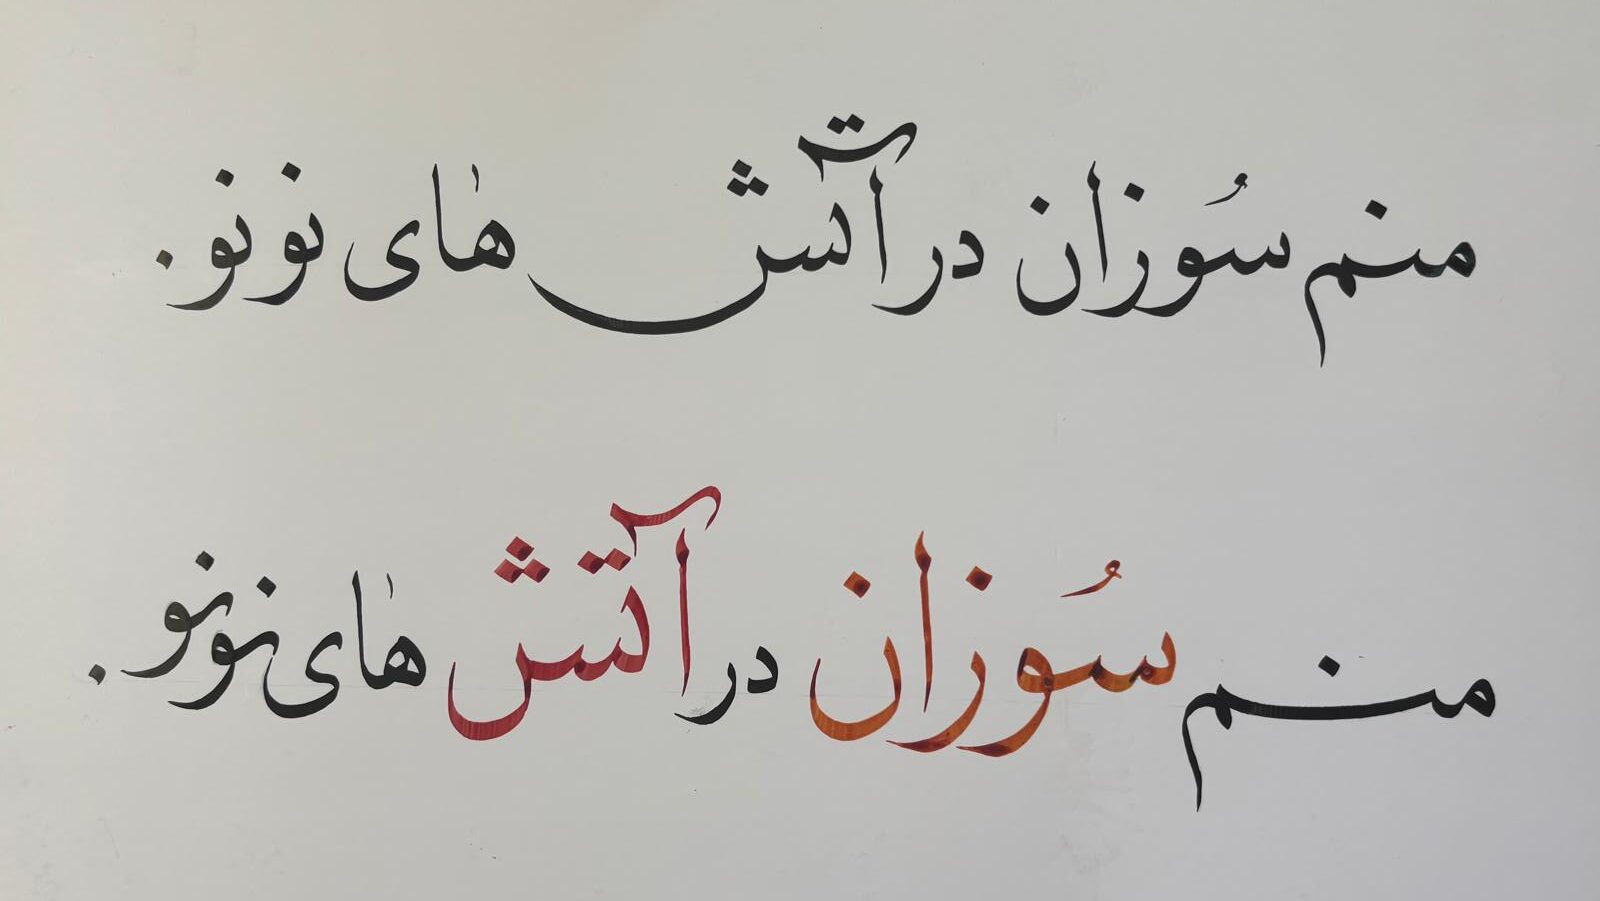 منم سُوزان در آتش هاى نو نو.
منم سُوزان در آتش هاى نو نو.